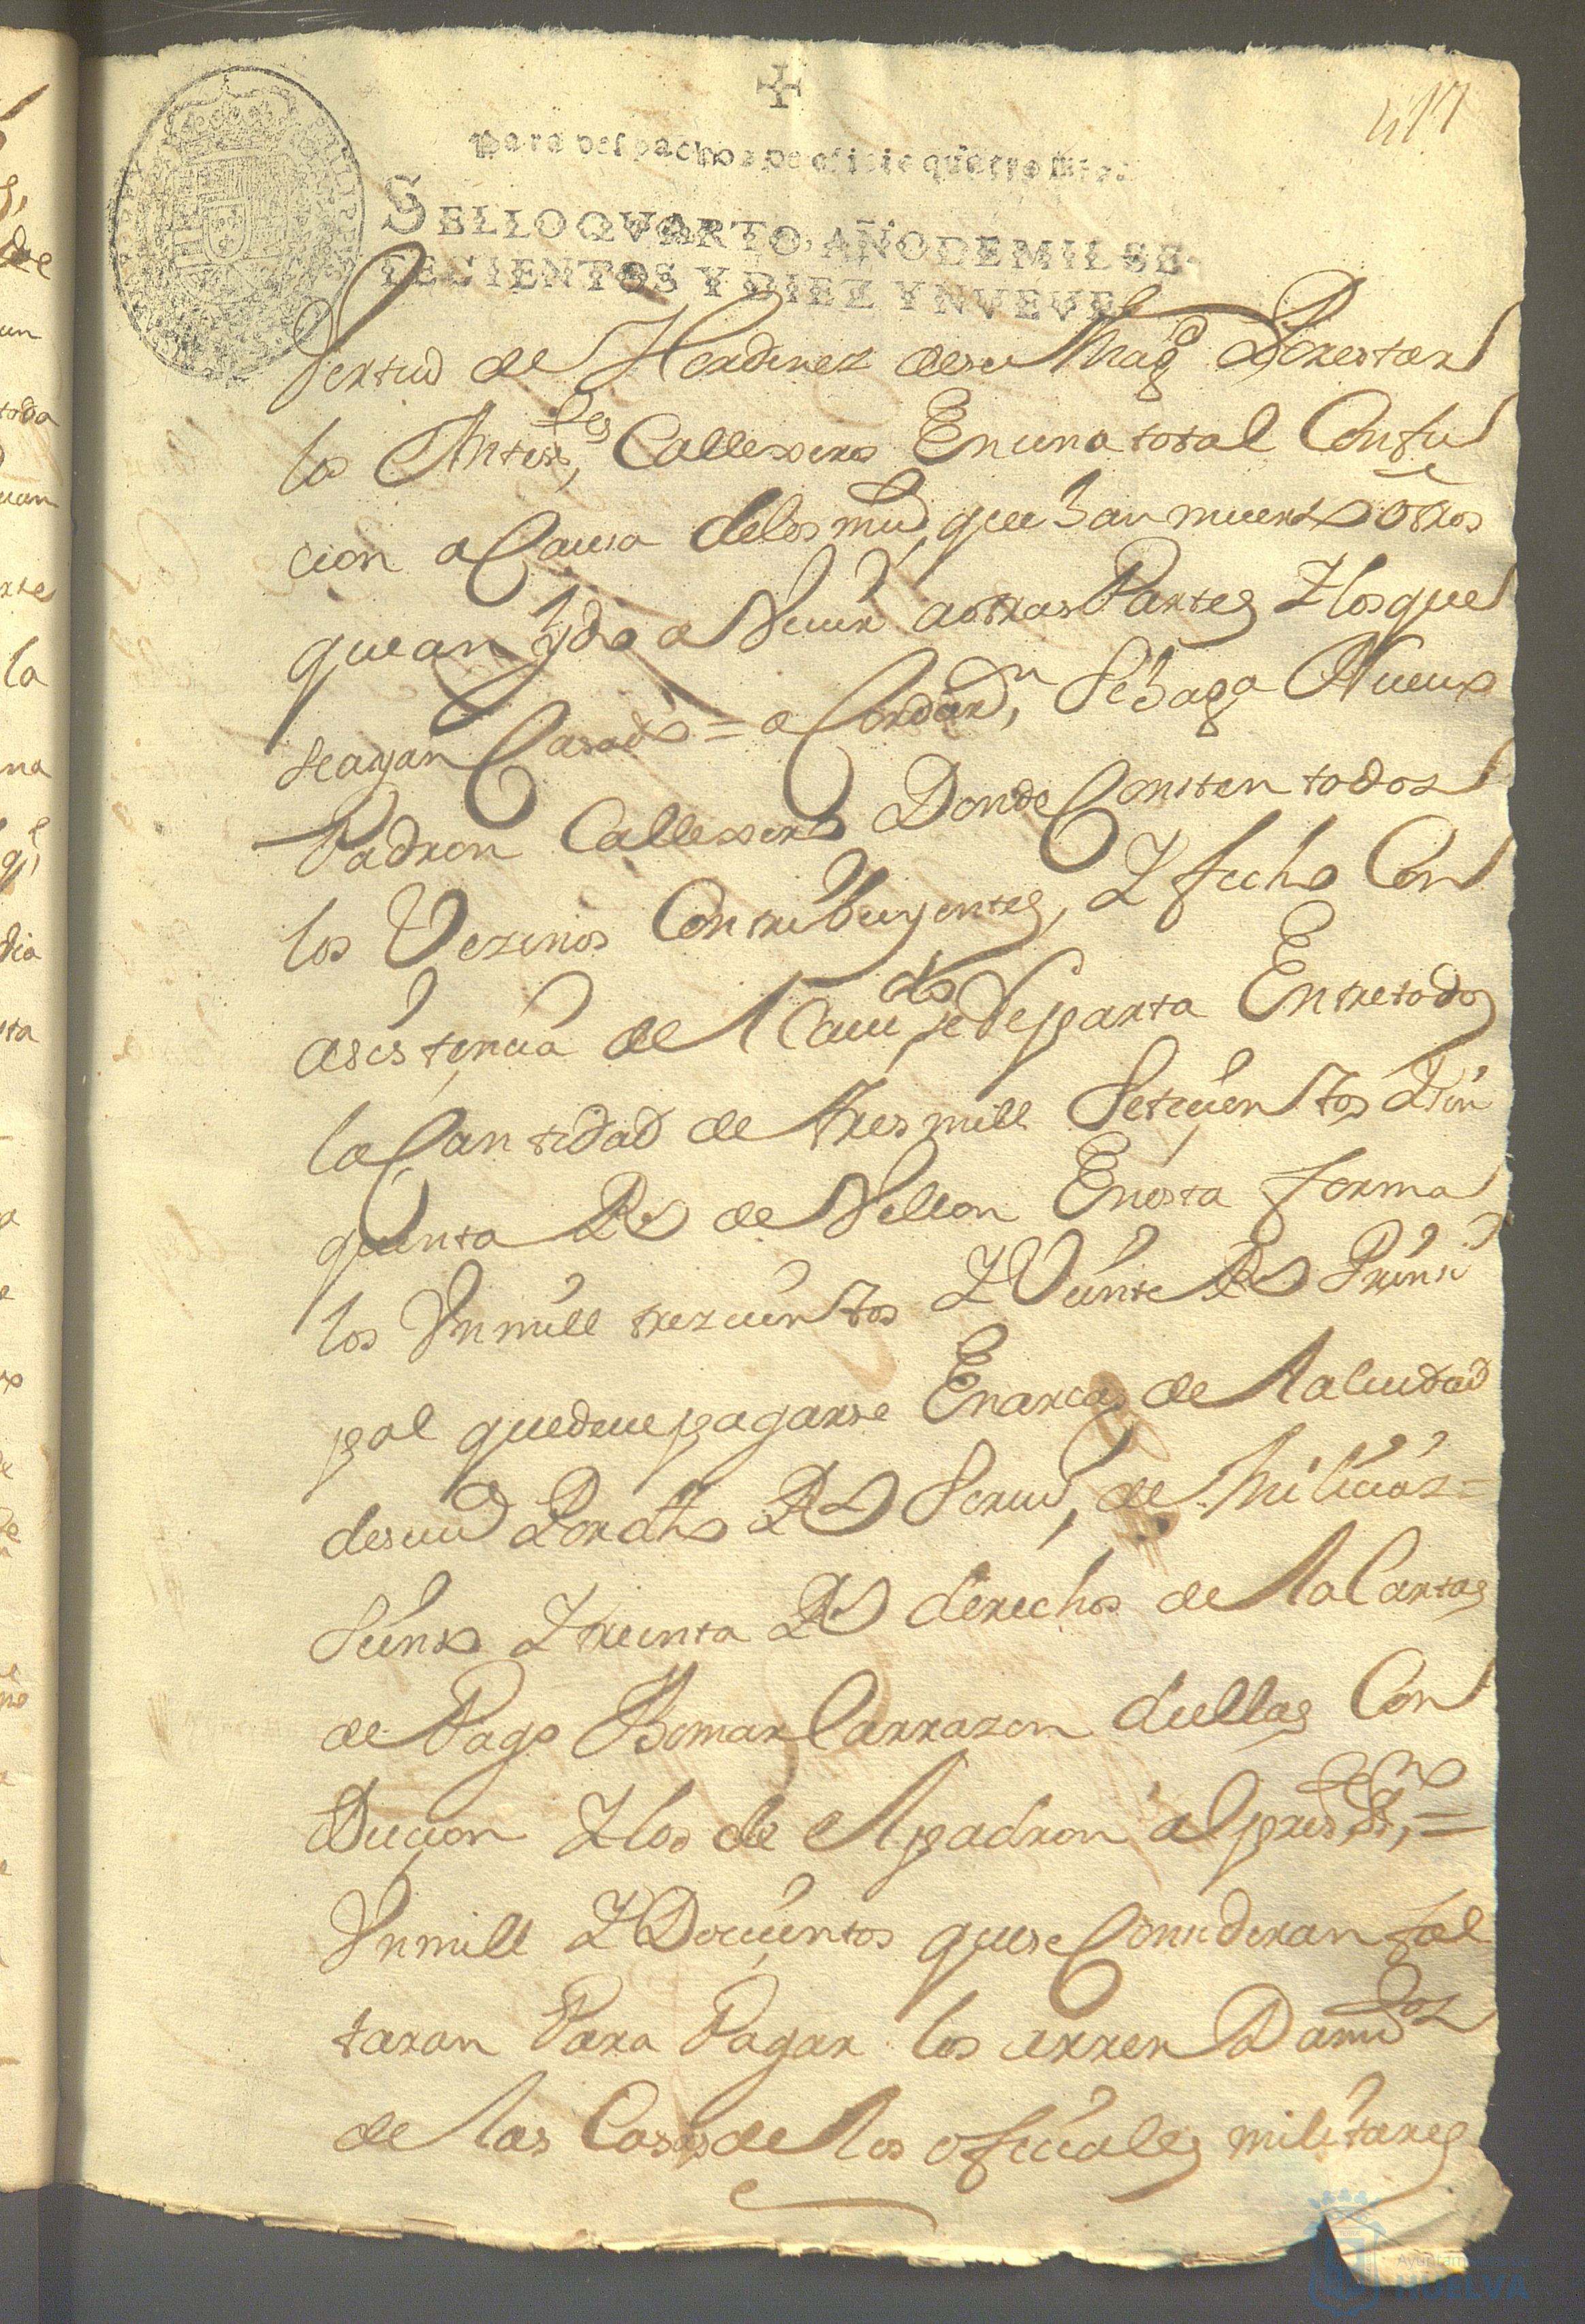 417
Para despachos de oficio quatro mrs.
SELLO QVARTO, AÑO DE MIL SE-
TECIENTOS Y DIEZ Y NVEVE.
Vertud de Hordenez de su Magd Por estar
los Anteres, Callexeros En una total Confu
cion a Causa de los muo, que han muerto otros
que an ydo a Viuir a otras Partes Y los que
se ayan Casado = aCordaron, Se haga Nueuo
Padron Callexero Donde Consten todos
los Vezinos Contribuyentes, Y fecho Con
asistencia de l Cauddo se Reparta Entre todos
la Cantidad de tres mill Setecientos Y sin
quenta Rs de Vellon En esta forma
los Vn mill trezcientos Y Veinte Rs Prinsi
pal que deue pagarse En arcas de la Ciudad
de seuia Por dho Rl Seruio, de Milicias =
Siento Y treinta Rs derechos de la Cartas
de Pago tomar la razon de ellas Con
Ducion Y los de el padron al pres, ssno, =
Vn mill Y Docientos que se Consideran fal
taran Para Pagar los arren Damtos
de las Casas de los ofiçiales militares
Ayuntamiento de
HUELVA